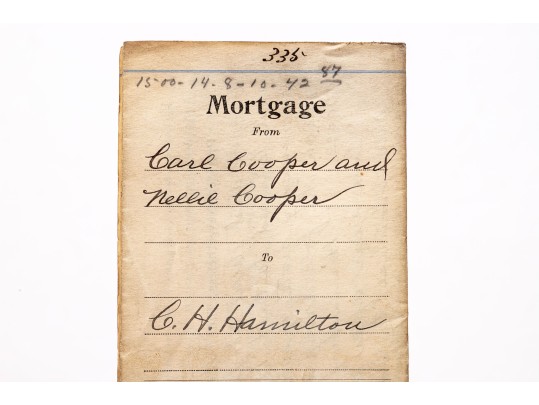 335
1500-14-8-10-42 87
Mortgage
From
Carl Cooper and
Nellie Cooper
To
C. H. Hamilton